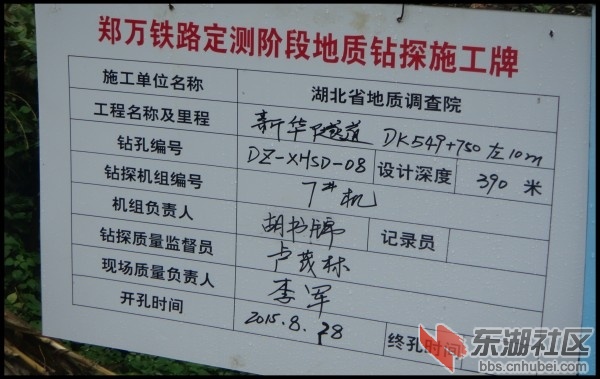 郑万铁路定测阶段地质钻探施工牌
施工单位名称 湖北省地质调查院
工程名称及里程 新华隧道 DK549+750左10m
钻孔编号 DZ-XHSD-08 设计深度 390 米
钻探机组编号 7#机
机组负责人 胡书 记录员
钻探质量监督员 卢茂林
现场质量负责人 李军
开孔时间 2015.8.28 终孔时间
东湖社区
bbs.cnhubei.com